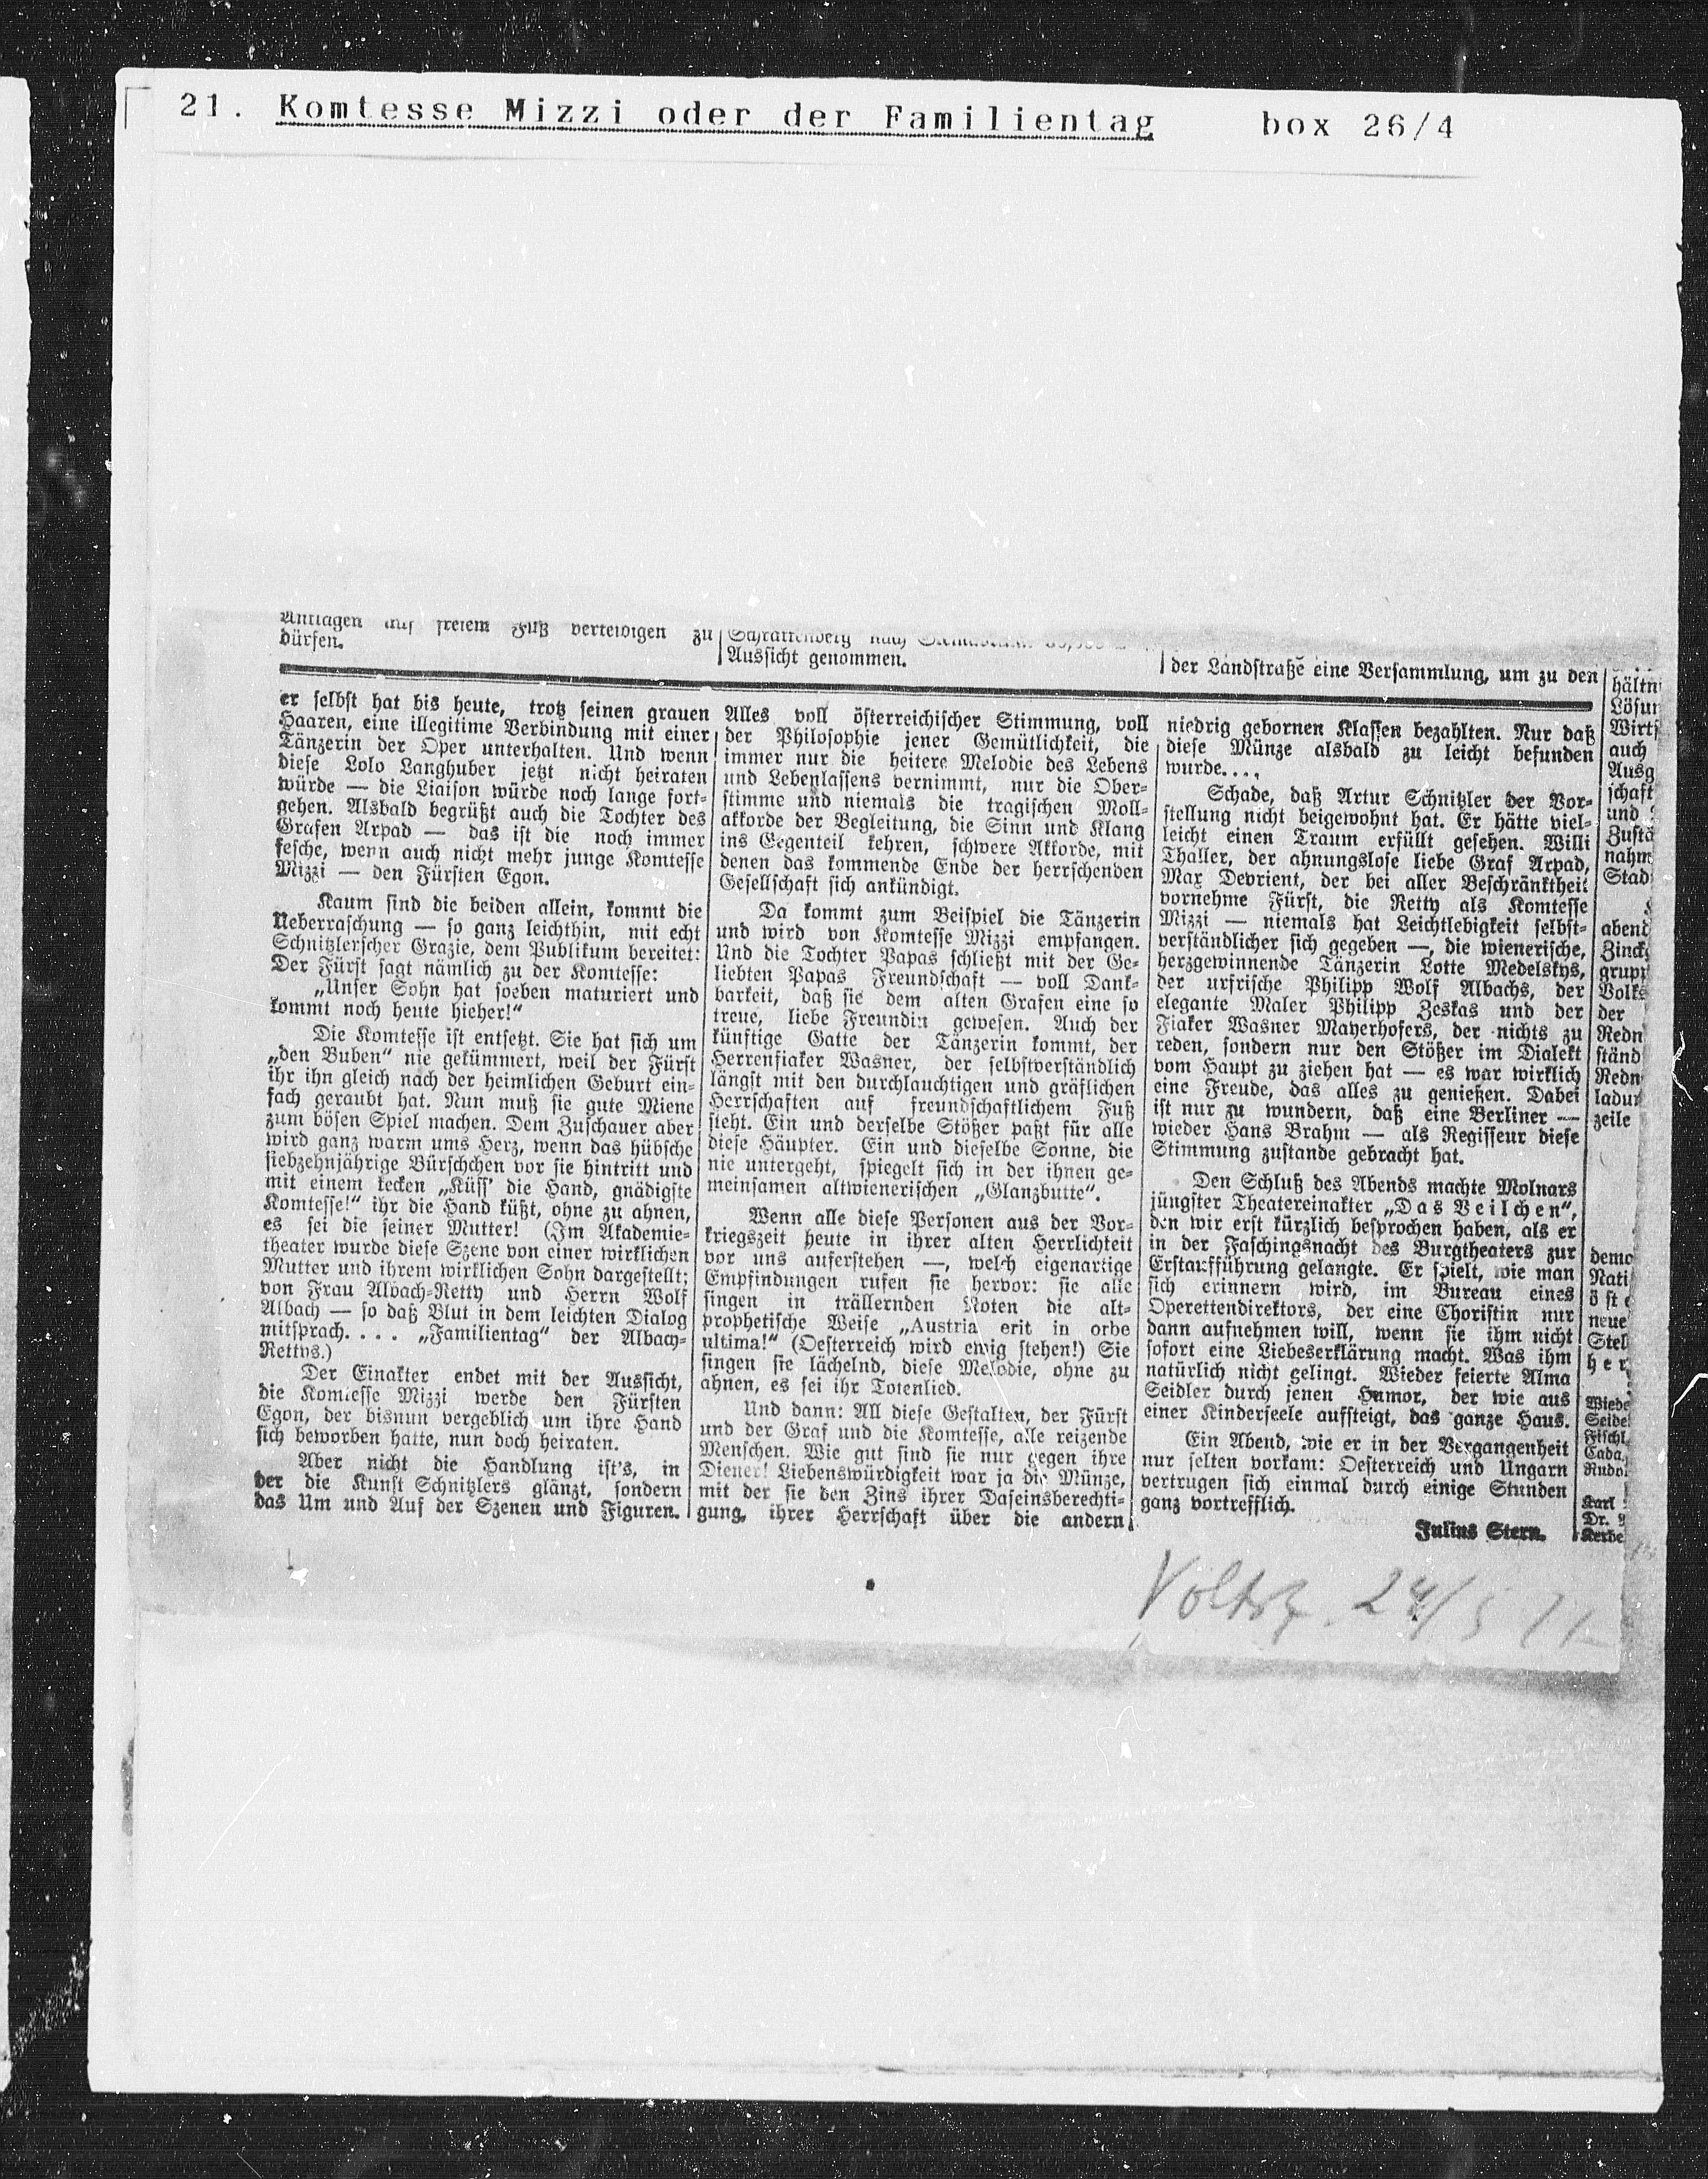 21. Komtesse Mizzi oder der Familientag box 26/4
freiem Fuß verteidigen zu
dürfen.
Aussicht genommen.
der Landstraße eine Versammlung, um zu den
er selbst hat bis heute, trotz seinen grauen
Haaren, eine illegitime Verbindung mit einer
Tänzerin der Oper unterhalten. Und wenn
diese Lolo Langhuber jetzt nicht heiraten
würde — die Liaison würde noch lange fort-
gehen. Alsbald begrüßt auch die Tochter des
Grafen Arpad — das ist die noch immer
fesche, wenn auch nicht mehr junge Komtesse
Mizzi — den Fürsten Egon.
Kaum sind die beiden allein, kommt die
Ueberraschung — so ganz leichthin, mit echt
Schnitzlerscher Grazie, dem Publikum bereitet:
Der Fürst sagt nämlich zu der Komtesse:
„Unser Sohn hat soeben maturiert und
kommt noch heute hieher!“
Die Komtesse ist entsetzt. Sie hat sich um
„den Buben“ nie gekümmert, weil der Fürst
ihr ihn gleich nach der heimlichen Geburt ein-
fach geraubt hat. Nun muß sie gute Miene
zum bösen Spiel machen. Dem Zuschauer aber
wird ganz warm ums Herz, wenn das hübsche
siebzehnjährige Bürschchen vor sie hintritt und
mit einem kecken „Küss' die Hand, gnädigste
Komtesse!“ ihr die Hand küßt, ohne zu ahnen,
es sei die seiner Mutter! (Im Akademie-
theater wurde diese Szene von einer wirklichen
Mutter und ihrem wirklichen Sohn dargestellt;
von Frau Albach-Retty und Herrn Wolf
Albach — so daß Blut in dem leichten Dialog
mitsprach. . . . „Familientag“ der Albach-
Rettys.)
Der Einakter endet mit der Aussicht,
die Komtesse Mizzi werde den Fürsten
Egon, der bisnun vergeblich um ihre Hand
sich beworben hatte, nun doch heiraten.
Aber nicht die Handlung ist's, in
der die Kunst Schnitzlers glänzt, sondern
das Um und Auf der Szenen und Figuren.
Alles voll österreichischer Stimmung, voll
der Philosophie jener Gemütlichkeit, die
immer nur die heitere Melodie des Lebens
und Lebenlassens vernimmt, nur die Ober-
stimme und niemals die tragischen Moll-
akkorde der Begleitung, die Sinn und Klang
ins Gegenteil kehren, schwere Akkorde, mit
denen das kommende Ende der herrschenden
Gesellschaft sich ankündigt.
Da kommt zum Beispiel die Tänzerin
und wird von Komtesse Mizzi empfangen.
Und die Tochter Papas schließt mit der Ge-
liebten Papas Freundschaft — voll Dank-
barkeit, daß sie dem alten Grafen eine so
treue, liebe Freundin gewesen. Auch der
künftige Gatte der Tänzerin kommt, der
Herrenfiaker Wasner, der selbstverständlich
längst mit den durchlauchtigen und gräflichen
Herrschaften auf freundschaftlichem Fuß
steht. Ein und derselbe Stößer paßt für alle
diese Häupter. Ein und dieselbe Sonne, die
nie untergeht, spiegelt sich in der ihnen ge-
meinsamen altwienerischen „Glanzbutte“.
Wenn alle diese Personen aus der Vor-
kriegszeit heute in ihrer alten Herrlichkeit
vor uns auferstehen —, welch eigenartige
Empfindungen rufen sie hervor: sie alle
singen in trällernden Noten die alt-
prophetische Weise „Austria erit in orbe
ultima!“ (Oesterreich wird ewig stehen!) Sie
singen sie lächelnd, diese Melodie, ohne zu
ahnen, es sei ihr Totenlied.
Und dann: All diese Gestalten, der Fürst
und der Graf und die Komtesse, alle reizende
Menschen. Wie gut sind sie nur gegen ihre
Diener! Liebenswürdigkeit war ja die Münze,
mit der sie den Zins ihrer Daseinsberechti-
gung, ihrer Herrschaft über die andern
niedrig gebornen Klassen bezahlten. Nur daß
diese Münze alsbald zu leicht befunden
wurde. . . .
Schade, daß Artur Schnitzler der Vor-
stellung nicht beigewohnt hat. Er hätte viel-
leicht einen Traum erfüllt gesehen. Willi
Thaller, der ahnungslose liebe Graf Arpad,
Max Devrient, der bei aller Beschränktheit
vornehme Fürst, die Retty als Komtesse
Mizzi — niemals hat Leichtlebigkeit selbst-
verständlicher sich gegeben —, die wienerische,
herzgewinnende Tänzerin Lotte Medelskys,
der urfrische Philipp Wolf Albachs, der
elegante Maler Philipp Zeskas und der
Fiaker Wasner Mayerhofers, der nichts zu
reden, sondern nur den Stößer im Dialekt
vom Haupt zu ziehen hat — es war wirklich
eine Freude, das alles zu genießen. Dabei
ist nur zu wundern, daß eine Berliner —
wieder Hans Brahm — als Regisseur diese
Stimmung zustande gebracht hat.
Den Schluß des Abends machte Molnars
jüngster Theatereinakter „Das Veilchen“,
den wir erst kürzlich besprochen haben, als er
in der Faschingsnacht des Burgtheaters zur
Erstaufführung gelangte. Er spielt, wie man
sich erinnern wird, im Bureau eines
Operettendirektors, der eine Choristin nur
dann aufnehmen will, wenn sie ihm nicht
sofort eine Liebeserklärung macht. Was ihm
natürlich nicht gelingt. Wieder feierte Alma
Seidler durch jenen Humor, der wie aus
einer Kinderseele aufsteigt, das ganze Haus.
Ein Abend, wie er in der Vergangenheit
nur selten vorkam: Oesterreich und Ungarn
vertrugen sich einmal durch einige Stunden
ganz vortrefflich.
Julius Stern.
hältn
Lösun
Wirts
auch
Ausg
schaft
und
Zustä
nahm
Stad
abend
Zinck
grupp
Volks
der
Redn
ständ
Redn
ladun
zeile
demo
Nati
öst
neue
Stel
her
Wiede
Seide
Fischl
Cada
Rudo
Karl
Dr.
Volksz. 24/5